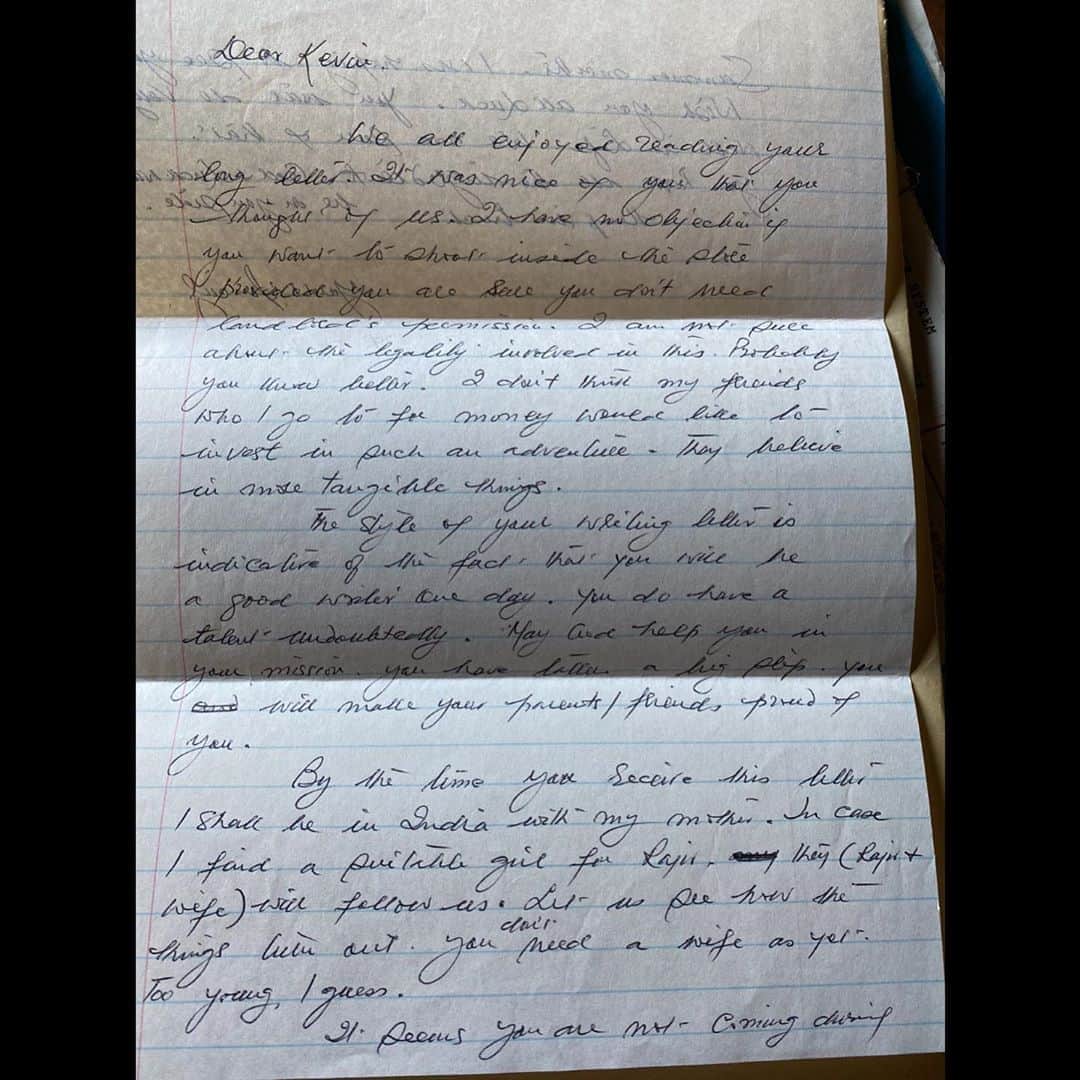 Dear Kevin.
We all enjoyed reading your
long letter. It was nice of you that you
thought of us. I have no objection if
you want to shoot inside the store
provided you are sure you don't need
landlord's permission. I am not sure
about the legality involved in this. Probably
you know better. I don't think my friends
who I go to for money would like to
invest in such an adventure. They believe
in more tangible things.
The style of your writing letter is
indicative of the fact that you will be
a good writer one day. You do have a
talent undoubtedly. May God help you in
your mission. you have taken a big step. you
will make your parents/friends proud of
you.
By the time you receive this letter
I shall be in India with my mother. In case
I find a suitable girl for Rajir, they (Rajir +
wife) will follow us. Let us see how the
things turn out. You don't need a wife as yet.
Too young, I guess.
It seems you are not coming during